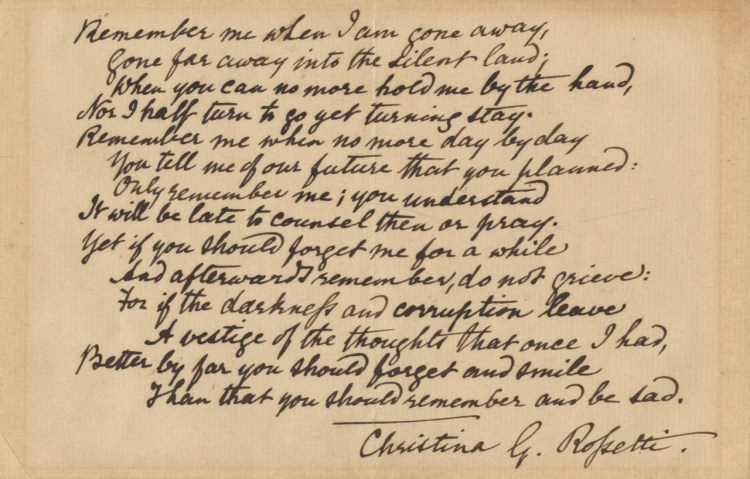 Remember me when I am gone away,
Gone far away into the silent land;
When you can no more hold me by the hand,
Nor I half turn to go yet turning stay.
Remember me when no more day by day
You tell me of our future that you planned:
Only remember me; you understand
It will be late to counsel then or pray.
Yet if you should forget me for a while
And afterwards remember, do not grieve:
For if the darkneſs and corruption leave
A vestige of the thoughts that once I had,
Better by far you should forget and smile
Than that you should remember and be sad.
Christina G. Roſsetti.